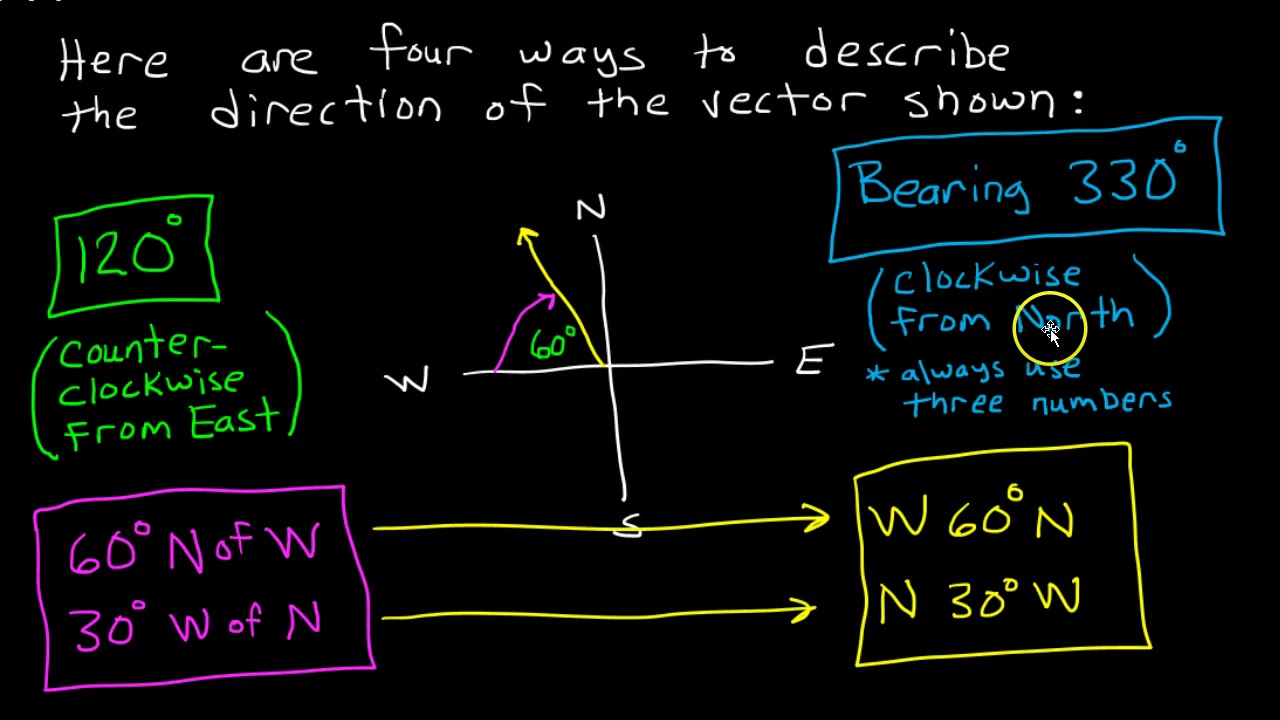 Here are four ways to describe
the direction of the vector shown:
120°
(counter-
clockwise
from East)
N
W
E
S
60°
Bearing 330°
(clockwise
from North)
* always use
three numbers
60° N of W
30° W of N
W 60° N
N 30° W